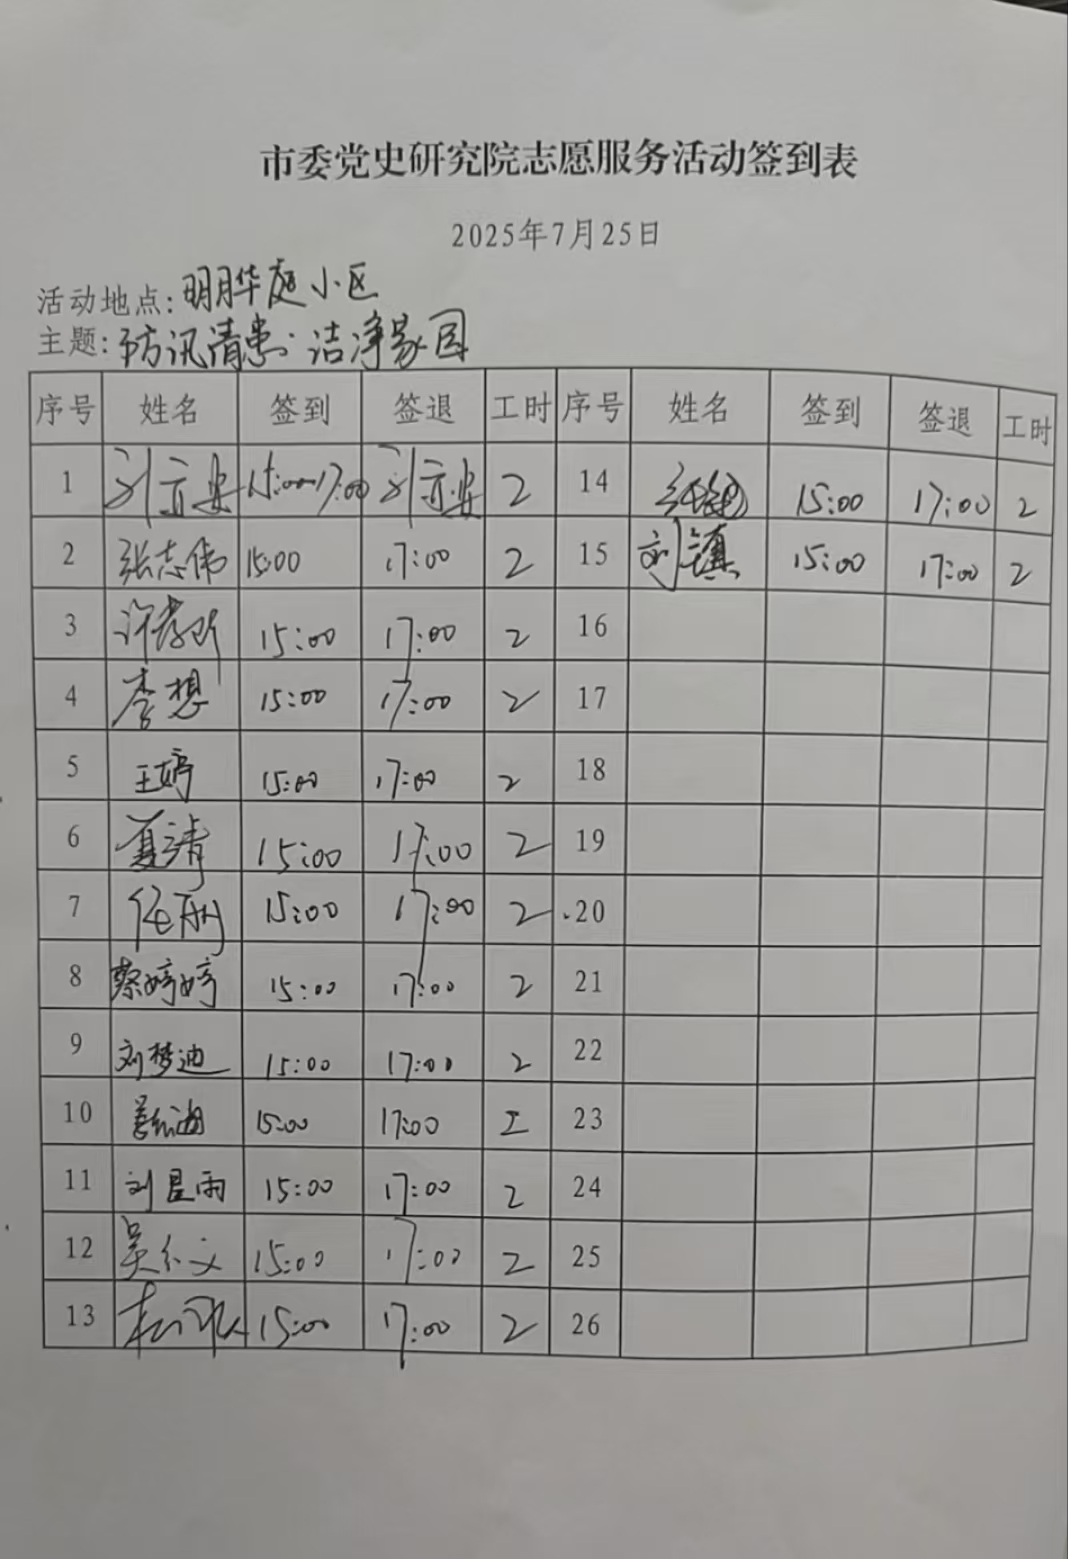 市委党史研究院志愿服务活动签到表
2025年7月25日
活动地点:明月华庭小区
主题:防汛清患·洁净家园
序号 姓名 签到 签退 工时 序号 姓名 签到 签退 工时
1 刘京安 15:00-17:00 刘京安 2 14 15:00 17:00 2
2 张志伟 15:00 17:00 2 15 刘镇 15:00 17:00 2
3 15:00 17:00 2 16
4 李想 15:00 17:00 2 17
5 王婷 15:00 17:00 2 18
6 夏清 15:00 17:00 2 19
7 任丽 15:00 17:00 2 20
8 蔡婷婷 15:00 17:00 2 21
9 刘梦迪 15:00 17:00 2 22
10 15:00 17:00 2 23
11 刘星雨 15:00 17:00 2 24
12 15:00 17:00 2 25
13 15:00 17:00 2 26